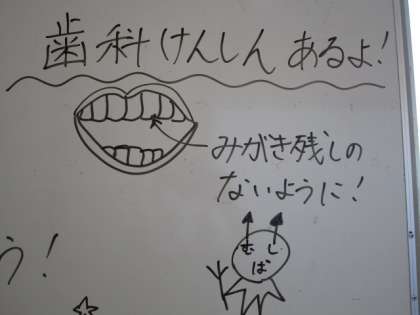 歯科けんしんあるよ!
みがき残しの
ないように!
むし
ば
う!